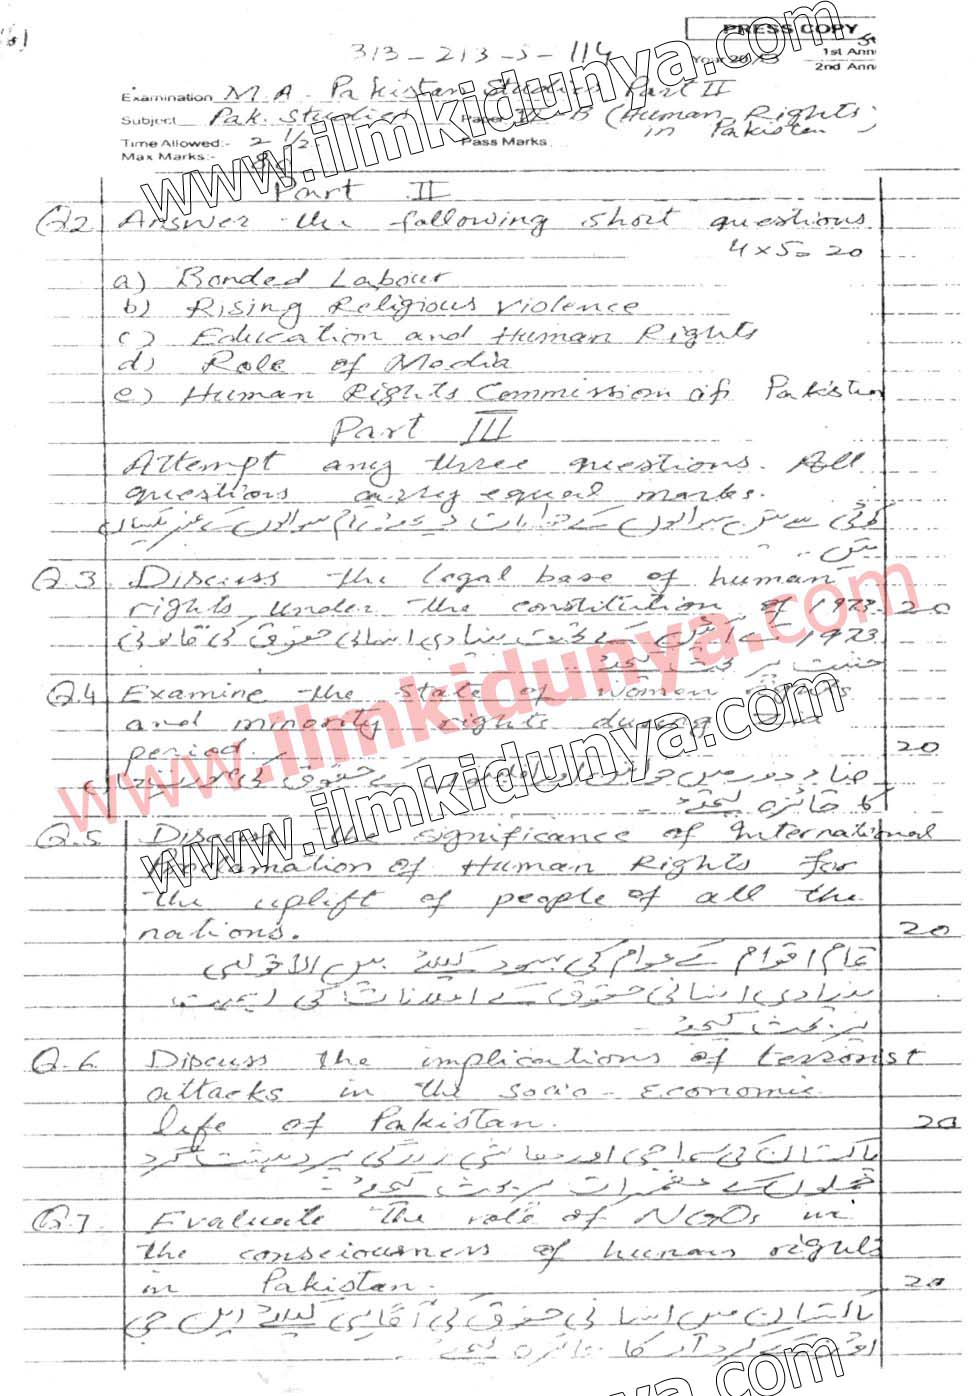 PRESS COPY
313-213-S-114
1st Ann
2nd Ann
Examination M.A. Pakistan Studies Part II
Subject Pak. Studies Paper IX-B (Human Rights
in Pakistan)
Time Allowed:- 2 1/2 Pass Marks
Max Marks:- 80
Part II
Q2 Answer the following short questions
4x5=20
a) Bonded Labour
b) Rising Religious violence
c) Education and Human Rights
d) Role of Media
e) Human Rights Commission of Pakistan
Part III
Attempt any three questions. All
questions carry equal marks.
کوئی سے تین سوالوں کے جوابات دیجئے تمام سوالوں کے نمبر یکساں
ہیں
Q.3 Discuss the legal base of human
rights under the constitution of 1973. 20
1973 کے آئین کے تحت بنیادی انسانی حقوق کی قانونی
پر بحث کیجئے
Q.4 Examine the state of women rights
and minority rights during Zia
period. 20
ضیاء دور میں خواتین اور اقلیتوں کے حقوق کی
کا جائزہ لیجئے۔
Q.5 Discuss the significance of International
Declamation of Human Rights for
the uplift of people of all the
nations. 20
تمام اقوام کے عوام کی بہبود کیلئے بین الاقوامی
بنیادی انسانی حقوق کے اعلانات کی اہمیت
پر بحث کیجئے۔
Q.6 Discuss the implications of terrorist
attacks in the socio-Economic
life of Pakistan. 20
پاکستان کی سماجی اور معاشی زندگی پر دہشت گرد
حملوں کے مضمرات پر بحث کیجئے۔
Q.7 Evaluate the role of NGOs in
the consciousness of human rights
in Pakistan. 20
پاکستان میں انسانی حقوق کی آگاہی کیلئے این جی
اوز کے کردار کا جائزہ لیجئے۔
www.ilmkidunya.com
www.ilmkidunya.com
www.ilmkidunya.com
www.ilmkidunya.com